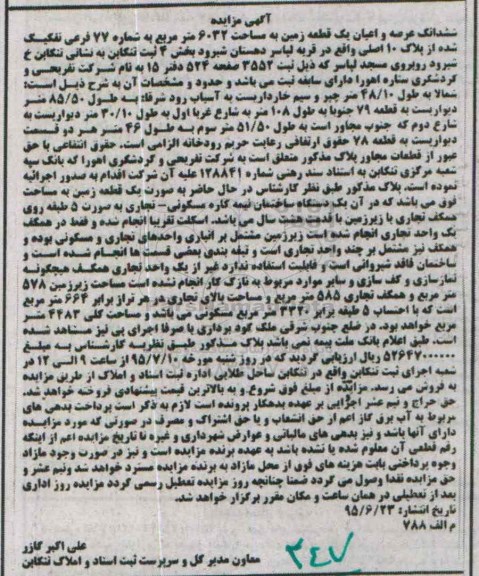 آگهی مزایده
ششدانگ عرصه و اعیان یک قطعه زمین به مساحت ۶۰۳۲ متر مربع به شماره ۷۷ فرعی تفکیک
شده از پلاک ۱۰ اصلی واقع در قریه لپاسر دهستان شیرود بخش ۴ ثبت تنکابن به نشانی تنکابن خ
شیرود روبروی مسجد لپاسر که ذیل ثبت ۳۵۵۲ صفحه ۵۲۴ دفتر ۱۵ به نام شرکت تفریحی و
گردشگری ستاره اهورا دارای سابقه ثبت می باشد و حدود و مشخصات آن به شرح ذیل است:
شمالا به طول ۴۸/۱۰ متر چپر و سیم خارداریست به آسیاب رود شرقا: به طول ۸۵/۵۰ متر
دیواریست به قطعه ۷۹ جنوبا به طول ۱۰۸ متر به شارع غربا اول به طول ۳۰/۱۰ متر دیواریست به
شارع دوم که جنوب مجاور است به طول ۵۱/۵۰ متر سوم به طول ۴۶ متر هر دو قسمت
دیواریست به قطعه ۷۸ حقوق ارتفاقی رعایت حریم رودخانه الزامی است. حقوق انتفاعی با حق
عبور از قطعات مجاور پلاک مذکور متعلق است به شرکت تفریحی و گردشگری اهورا که بانک سپه
شعبه مرکزی تنکابن به استناد سند رهنی شماره ۱۲۸۸۴۱ علیه آن شرکت اقدام به صدور اجرائیه
نموده است. پلاک مذکور طبق نظر کارشناس در حال حاضر به صورت یک قطعه زمین به مساحت
فوق می باشد که در آن یک دستگاه ساختمان نیمه کاره مسکونی- تجاری به صورت ۵ طبقه روی
همکف تجاری با زیرزمین با قدمت هشت سال می باشد. اسکلت تقریبا انجام شده و فقط در همکف
یک واحد تجاری انجام شده است زیرزمین مشتمل بر انباری واحدهای تجاری و مسکونی بوده و
همکف نیز مشتمل بر چند واحد تجاری است و تیغه بندی بعضی قسمت ها انجام شده است و
ساختمان فاقد شیروانی است و قابلیت استفاده ندارد غیر از یک واحد تجاری همکف هیچگونه
نماسازی و کف سازی و سایر موارد مربوط به نازک کار انجام نشده است مساحت زیرزمین ۵۷۸
متر مربع و همکف تجاری ۵۸۵ متر مربع و مساحت بالای تجاری در هر تراز برابر ۶۶۴ متر مربع
است که با احتساب ۵ طبقه برابر ۳۳۲۰ متر مربع مسکونی می باشد و مساحت کلی ۴۴۸۳ متر
مربع خواهد بود. در ضلع جنوب شرقی ملک گود برداری یا صرفا اجرای پی نیز مشاهده شده
است. طبق اعلام بانک ملت بیمه نمی باشد پلاک مذکور طبق نظریه کارشناس به مبلغ
۵۲۶۴۷۰۰۰۰۰۰ ریال ارزیابی گردید که در روز شنبه مورخه ۹۵/۷/۱۰ از ساعت ۹ الی ۱۲ در
شعبه اجرای ثبت تنکابن واقع در تنکابن ساحل طلایی اداره ثبت اسناد و املاک از طریق مزایده
به فروش می رسد. مزایده از مبلغ فوق شروع و به بالاترین قیمت پیشنهادی فروخته خواهد شد.
حق حراج و نیم عشر اجرایی بر عهده بدهکار پرونده است لازم به ذکر است پرداخت بدهی های
مربوط به آب برق گاز اعم از حق انشعاب و یا حق اشتراک و مصرف در صورتی که مورد مزایده
دارای آنها باشد و نیز بدهی های مالیاتی و عوارض شهرداری و غیره تا تاریخ مزایده اعم از اینکه
رقم قطعی آن معلوم شده یا نشده باشد به عهده برنده مزایده است و نیز در صورت وجود مازاد
وجوه پرداختی بابت هزینه های فوق از محل مازاد به برنده مزایده مسترد خواهد شد ونیم عشر و
حق مزایده نقدا وصول می گردد ضمنا چنانچه روز مزایده تعطیل رسمی گردد مزایده روز اداری
بعد از تعطیلی در همان ساعت و مکان مقرر برگزار خواهد شد.
تاریخ انتشار: ۹۵/۶/۲۳
م الف ۷۸۸
۳۴۷
علی اکبر گازر
معاون مدیر کل و سرپرست ثبت اسناد و املاک تنکابن